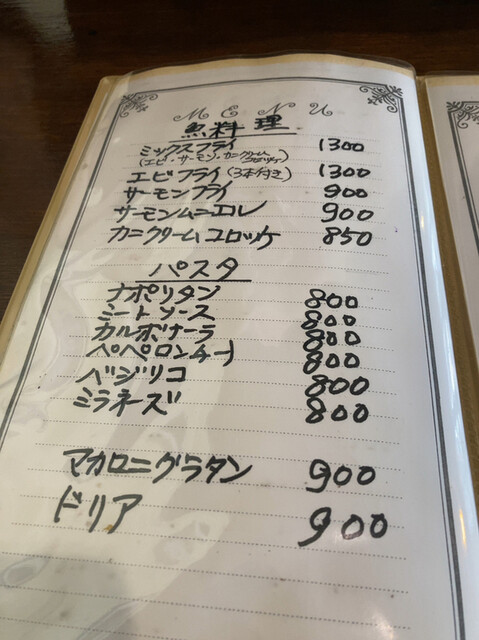 MENU
魚料理
ミックスフライ 1300
(エビ・サーモン・カニクリームコロッケ)
エビフライ(3本付き) 1300
サーモンフライ 900
サーモンムニエル 900
カニクリームコロッケ 850
パスタ
ナポリタン 800
ミートソース 800
カルボナーラ 800
ペペロンチーノ 800
ベジリコ 800
ミラネーズ 800
マカロニグラタン 900
ドリア 900